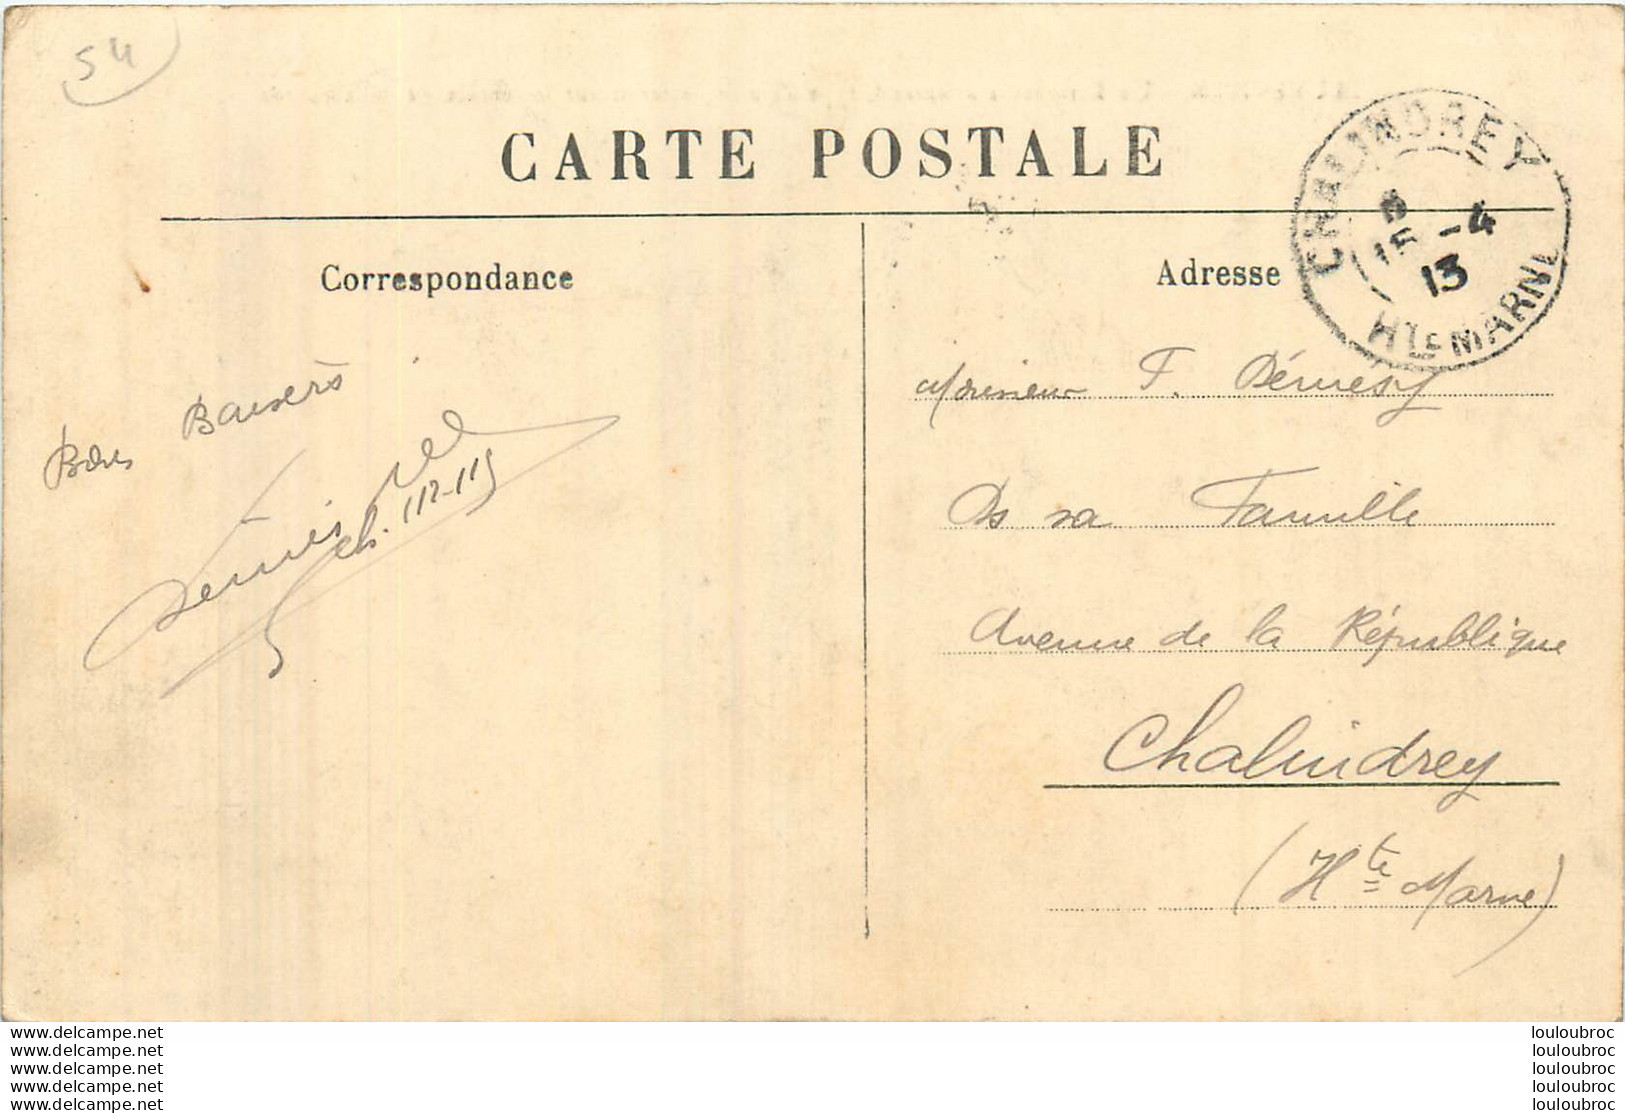 54
CARTE POSTALE
CHALINDREY
15 -4
13
Hte MARNE
Correspondance
Adresse
Bons Baisers
ch. 112-115
Monsieur F. Démesy
Ds sa Famille
Avenue de la République
Chalindrey
(Hte Marne)
www.delcampe.net
www.delcampe.net
www.delcampe.net
www.delcampe.net
www.delcampe.net
louloubroc
louloubroc
louloubroc
louloubroc
louloubroc